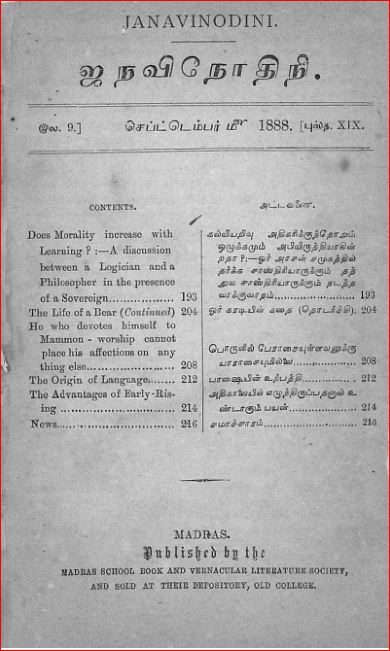 JANAVINODINI.
ஜநவிநோதினி.
இல. 9.] செப்டெம்பர் மீ 1888. [புஸ்த. XIX.
CONTENTS.
Does Morality increase with
Learning ? :—A discussion
between a Logician and a
Philosopher in the presence
of a Sovereign.................. 193
The Life of a Bear (Continued) 204
He who devotes himself to
Mammon - worship cannot
place his affections on any
thing else........................ 208
The Origin of Language....... 212
The Advantages of Early-Ris-
ing .............................. 214
News.............................. 216
அட்டவணை.
கல்வியறிவு அதிகரிக்குந்தோறும்
ஒழுக்கமும் அபிவிருத்தியாகின்
றதா ?:—ஓர் அரசன் சமுகத்தில்
தர்க்க சாஸ்திரியாருக்கும் தத்
துவ சாஸ்திரியாருக்கும் நடந்த
வாக்குவாதம்........................ 193
ஓர் கரடியின் கதை (தொடர்ச்சி). 204
பொருளில் பேராசையுள்ளவனுக்கு
யாராசையுமில்லை.................. 208
பாஷையின் உற்பத்தி............... 212
அதிகாலையில் எழுந்திருப்பதனால் உ
ண்டாகும் பயன்.................. 214
சமாச்சாரம்........................... 216
MADRAS.
Published by the
MADRAS SCHOOL BOOK AND VERNACULAR LITERATURE SOCIETY,
AND SOLD AT THEIR DEPOSITORY, OLD COLLEGE.